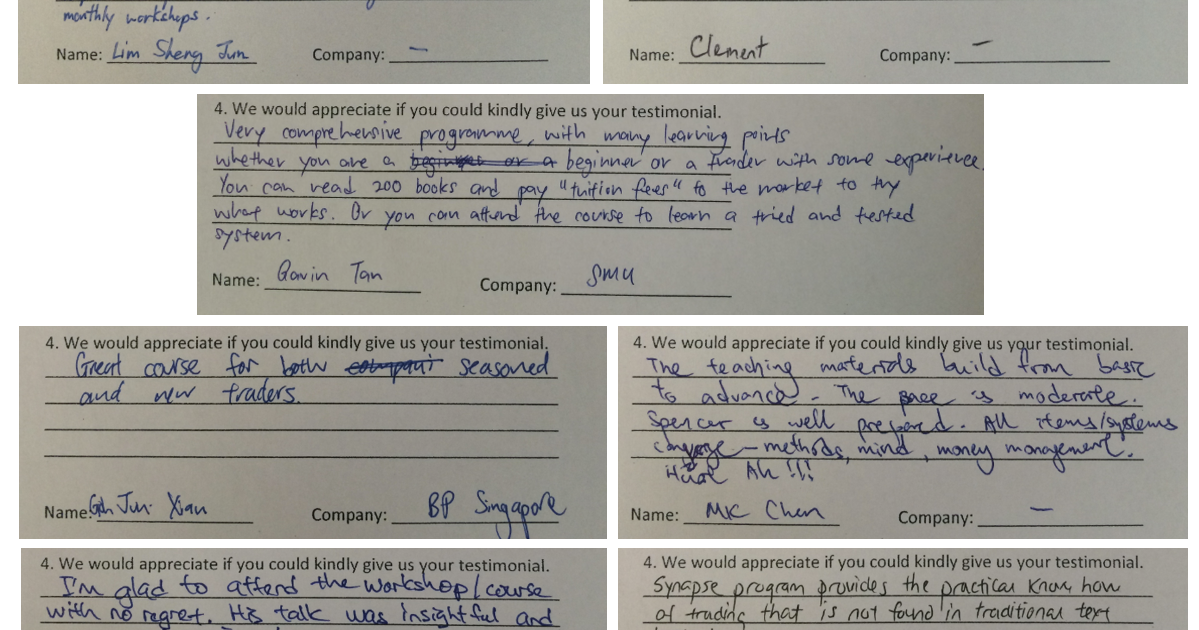 monthly workshops.
Name: Lim Sheng Jun Company: —
Name: Clement Company: —
4. We would appreciate if you could kindly give us your testimonial.
Very comprehensive programme, with many learning points
whether you are a beginner or a beginner or a trader with some experience.
You can read 200 books and pay "tuition fees" to the market to try
what works. Or you can attend the course to learn a tried and tested
system.
Name: Gavin Tan Company: SMU
4. We would appreciate if you could kindly give us your testimonial.
Great course for both seasoned
and new traders.
Name: Goh Jun Xian Company: BP Singapore
4. We would appreciate if you could kindly give us your testimonial.
The teaching materials build from basic
to advance. The pace is moderate.
Spencer is well prepared. All items/systems
converge – methods, mind, money management.
Huat Ah !!!
Name: MK Chen Company: —
4. We would appreciate if you could kindly give us your testimonial.
I'm glad to attend the workshop/course
with no regret. His talk was insightful and
4. We would appreciate if you could kindly give us your testimonial.
Synapse program provides the practical know how
of trading that is not found in traditional text